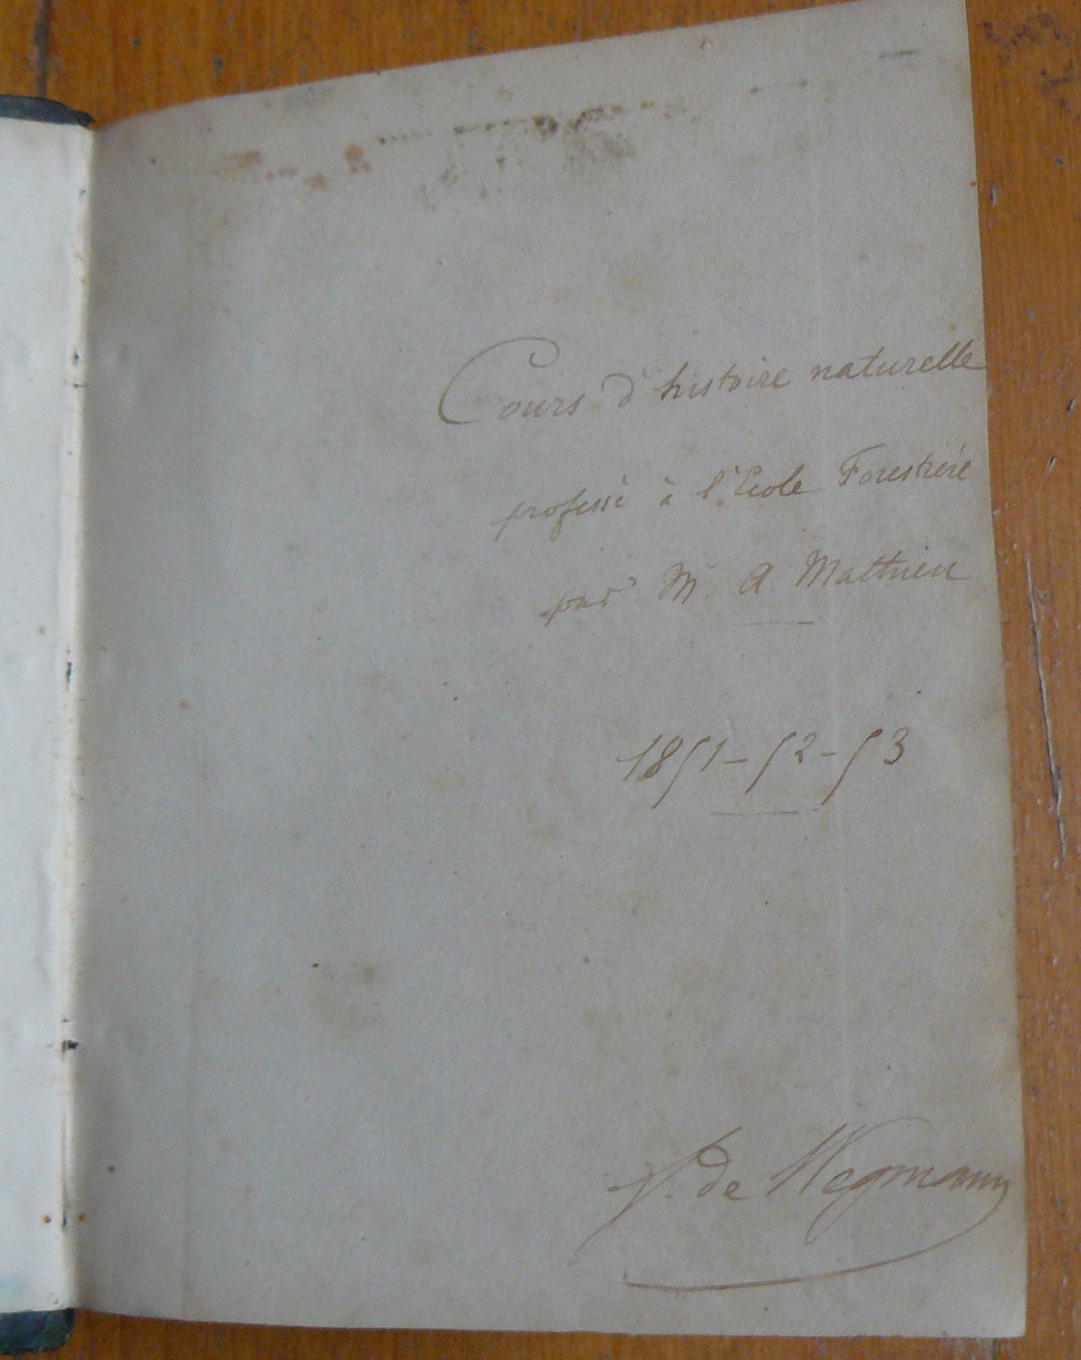 Cours d'histoire naturelle
professé à l'École Forestière
par M. A. Mathieu
1851-52-53
de Wegmann